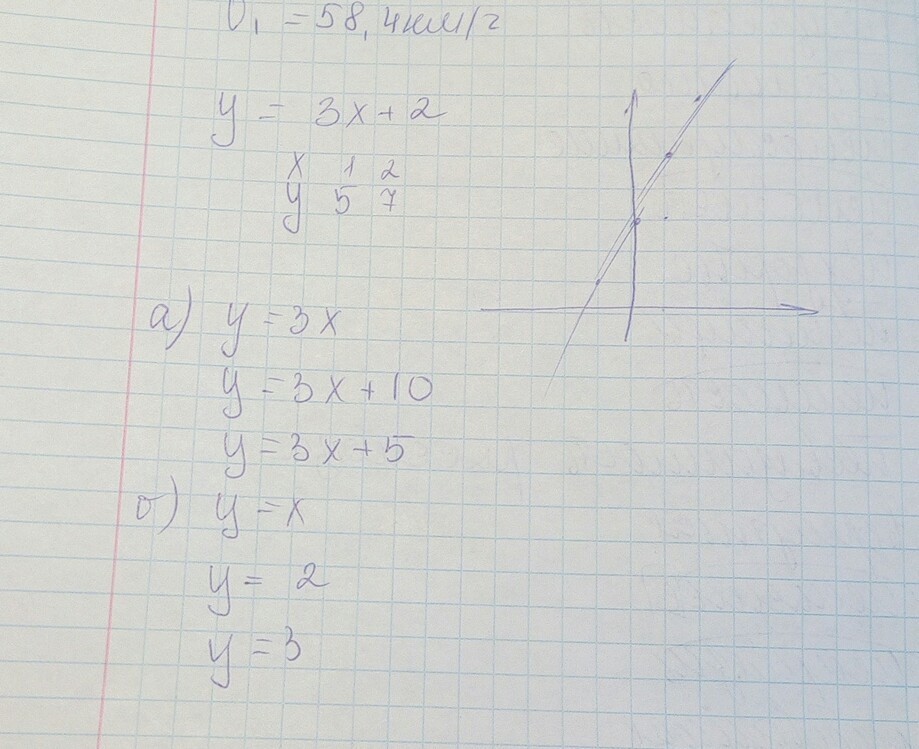 v₁ = 58,4 км/г
y = 3x + 2
x 1 2
y 5 7
а) y = 3x
y = 3x + 10
y = 3x + 5
б) y = x
y = 2
y = 3